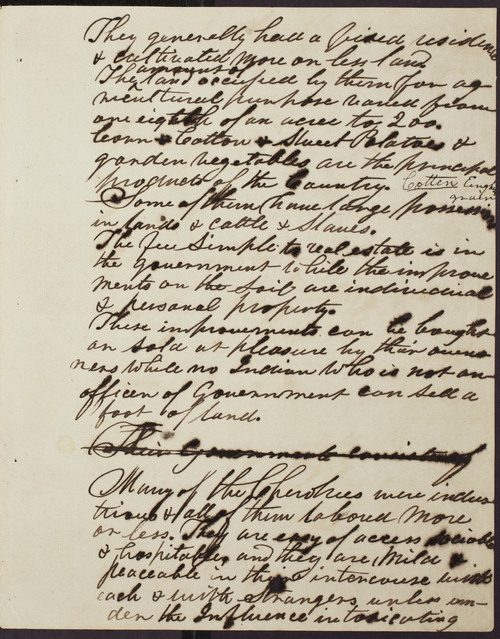 They generally had a fixed residence
& cultivated more or less land
The amount of land occupied by them for ag-
ricultural purpose varied from
one eighth of an acre to 200.
Corn & Cotton & Sweet Potatoes &
garden vegetables are the principal
products of the Country. Cotton
grain
Some of them have large possessi
in lands & cattle & Slaves.
The fee Simple to real estate is in
the government while the improve
ments on the soil are individual
& personal property.
These improvements can be bought
or sold at pleasure by their own
ners while no Indian who is not an
officer of Government can sell a
foot of land.
Their Government consists of
Many of the Cherokees were indus
trious & all of them labored more
or less. They are easy of access sociable
& hospitable and they are, Mild &
peaceable in their intercourse with
each & with Strangers unless un-
der the Influence intoxicating